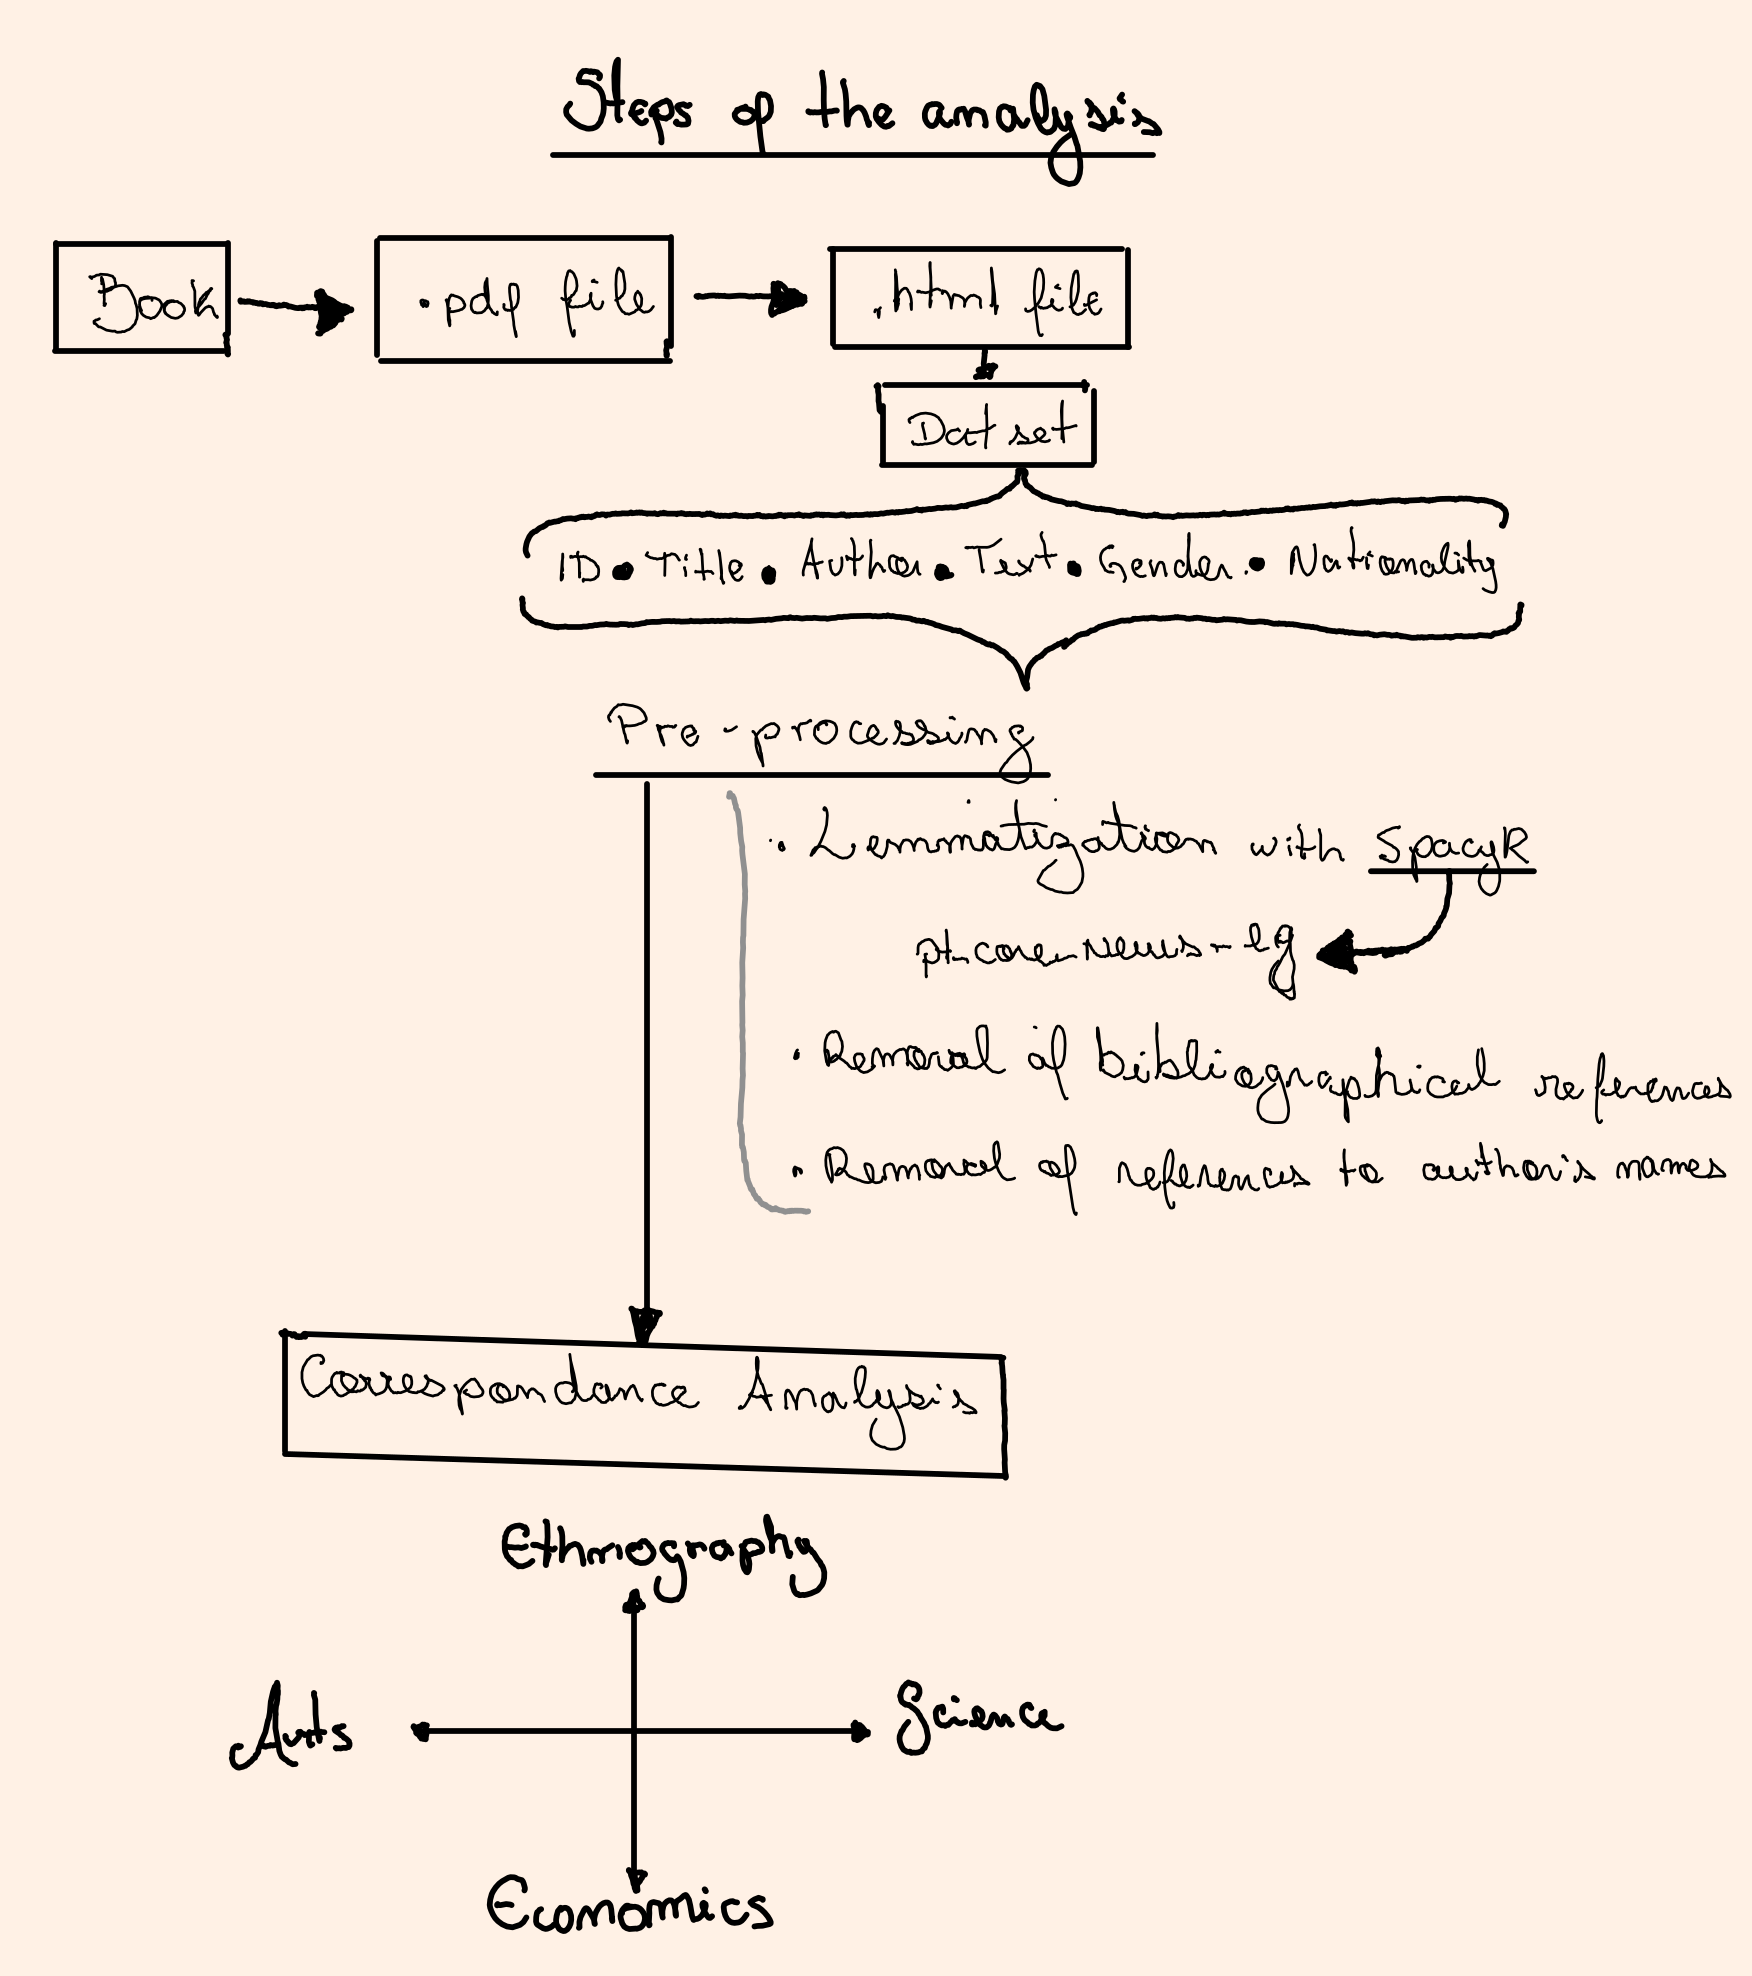 Steps of the analysis
Book
.pdf file
.html file
Dat set
ID • Title • Author • Text • Gender • Nationality
Pre-processing
· Lemmatization with SpacyR
pt_core_news_lg
· Removal of bibliographical references
· Removal of references to author's names
Correspondance Analysis
Ethnography
Arts
Science
Economics